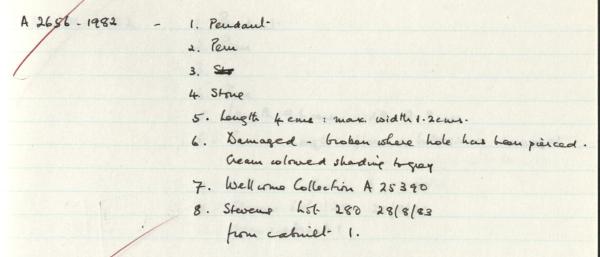 A 2656-1982 - 1. Pendant
2. Peru
3.
4. Stone
5. Length 4 cms : max width 1.2 cms.
6. Damaged - broken where hole has been pierced.
Cream coloured shading to gray
7. Wellcome Collection A 25390
8. Stevens Lot 280 28/8/83
from cabinet 1.